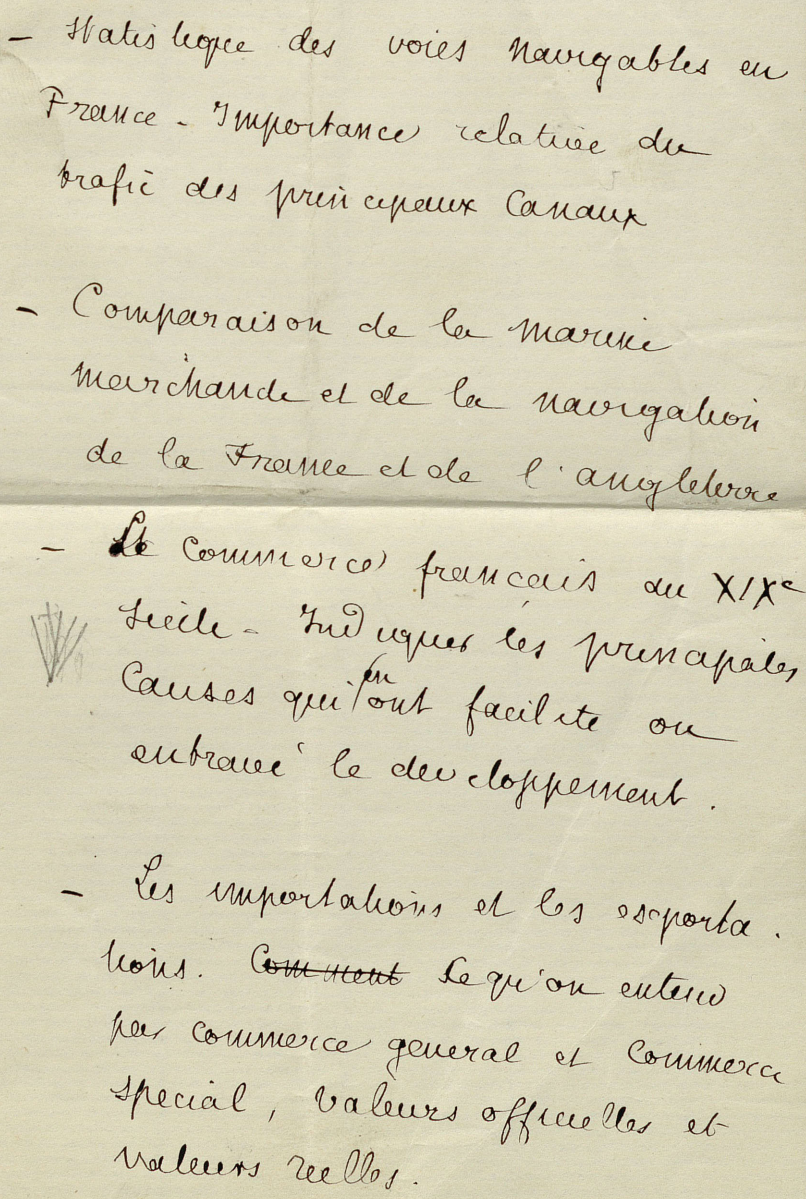 - Statistique des voies navigables en
France - Importance relative du
trafic des principaux Canaux
- Comparaison de la marine
marchande et de la navigation
de la France et de l'angleterre
- Le commerce français au XIXe
siècle - Indiquer les principales
Causes qui en ont facilité ou
entravé le développement.
- Les importations et les exporta.
tions. Comment Ce qu'on entend
par commerce general et commerce
special, valeurs officielles et
valeurs reelles.